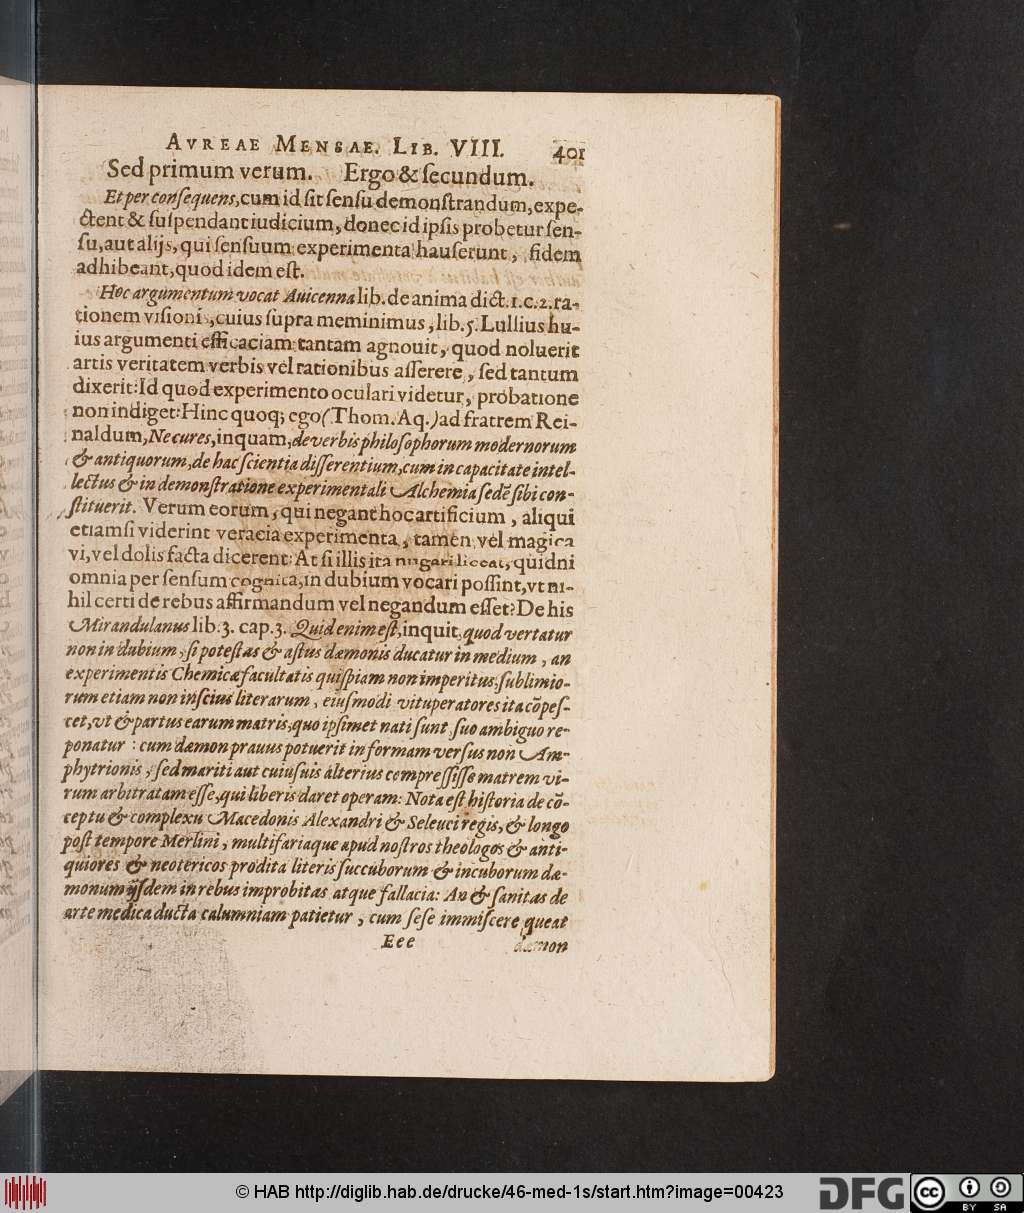 AVREAE MENSAE. LIB. VIII. 401
Sed primum verum. Ergo & ſecundum.
Et per conſequens, cum id ſit ſenſu demonſtrandum, expe-
ctent & ſuſpendant iudicium, donec id ipſis probetur ſen-
ſu, aut alijs, qui ſenſuum experimenta hauſerunt, fidem
adhibeant, quod idem eſt.
Hoc argumentum vocat Auicenna lib. de anima dict. 1. c. 2. ra-
tionem viſionis, cuius ſupra meminimus, lib. 5. Lullius hu-
ius argumenti efficaciam tantam agnouit, quod noluerit
artis veritatem verbis vel rationibus aſſerere, ſed tantum
dixerit: Id quod experimento oculari videtur, probatione
non indiget: Hinc quoq; ego (Thom. Aq.) ad fratrem Rei-
naldum, Ne cures, inquam, de verbis philoſophorum modernorum
& antiquorum, de hac ſcientia diſſerentium, cum in capacitate intel-
lectus & in demonſtratione experimentali Alchemia ſedẽ ſibi con-
ſtituerit. Verum eorum, qui negant hoc artificium, aliqui
etiamſi viderint veracia experimenta, tamen vel magica
vi, vel dolis facta dicerent: At ſi illis ita nugari liceat, quidni
omnia per ſenſum cognita, in dubium vocari poſſint, vt ni-
hil certi de rebus affirmandum vel negandum eſſet? De his
Mirandulanus lib. 3. cap. 3. Quid enim eſt, inquit, quod vertatur
non in dubium, ſi poteſtas & aſtus dæmonis ducatur in medium, an
experimentis Chemicæ facultatis quiſpiam non imperitus, ſublimio-
rum etiam non inſcius literarum, eiuſmodi vituperatores ita cõpeſ-
cet, vt & partus earum matris, quo ipſimet nati ſunt, ſuo ambiguo re-
ponatur: cum dæmon prauus potuerit in formam verſus non Am-
phytrionis, ſed mariti aut cuiuſuis alterius compreſſiſſe matrem vi-
rum arbitratam eſſe, qui liberis daret operam: Nota eſt hiſtoria de cõ-
ceptu & complexu Macedonis Alexandri & Seleuci regis, & longo
poſt tempore Merlini, multifariaque apud noſtros theologos & anti-
quiores & neotericos prodita literis ſuccuborum & incuborum dæ-
monum ijſdem in rebus improbitas atque fallacia: An & ſanitas de
arte medica ducta calumniam patietur, cum ſeſe immiſcere queat
Eee dæmon
© HAB http://diglib.hab.de/drucke/46-med-1s/start.htm?image=00423
DFG
cc BY SA